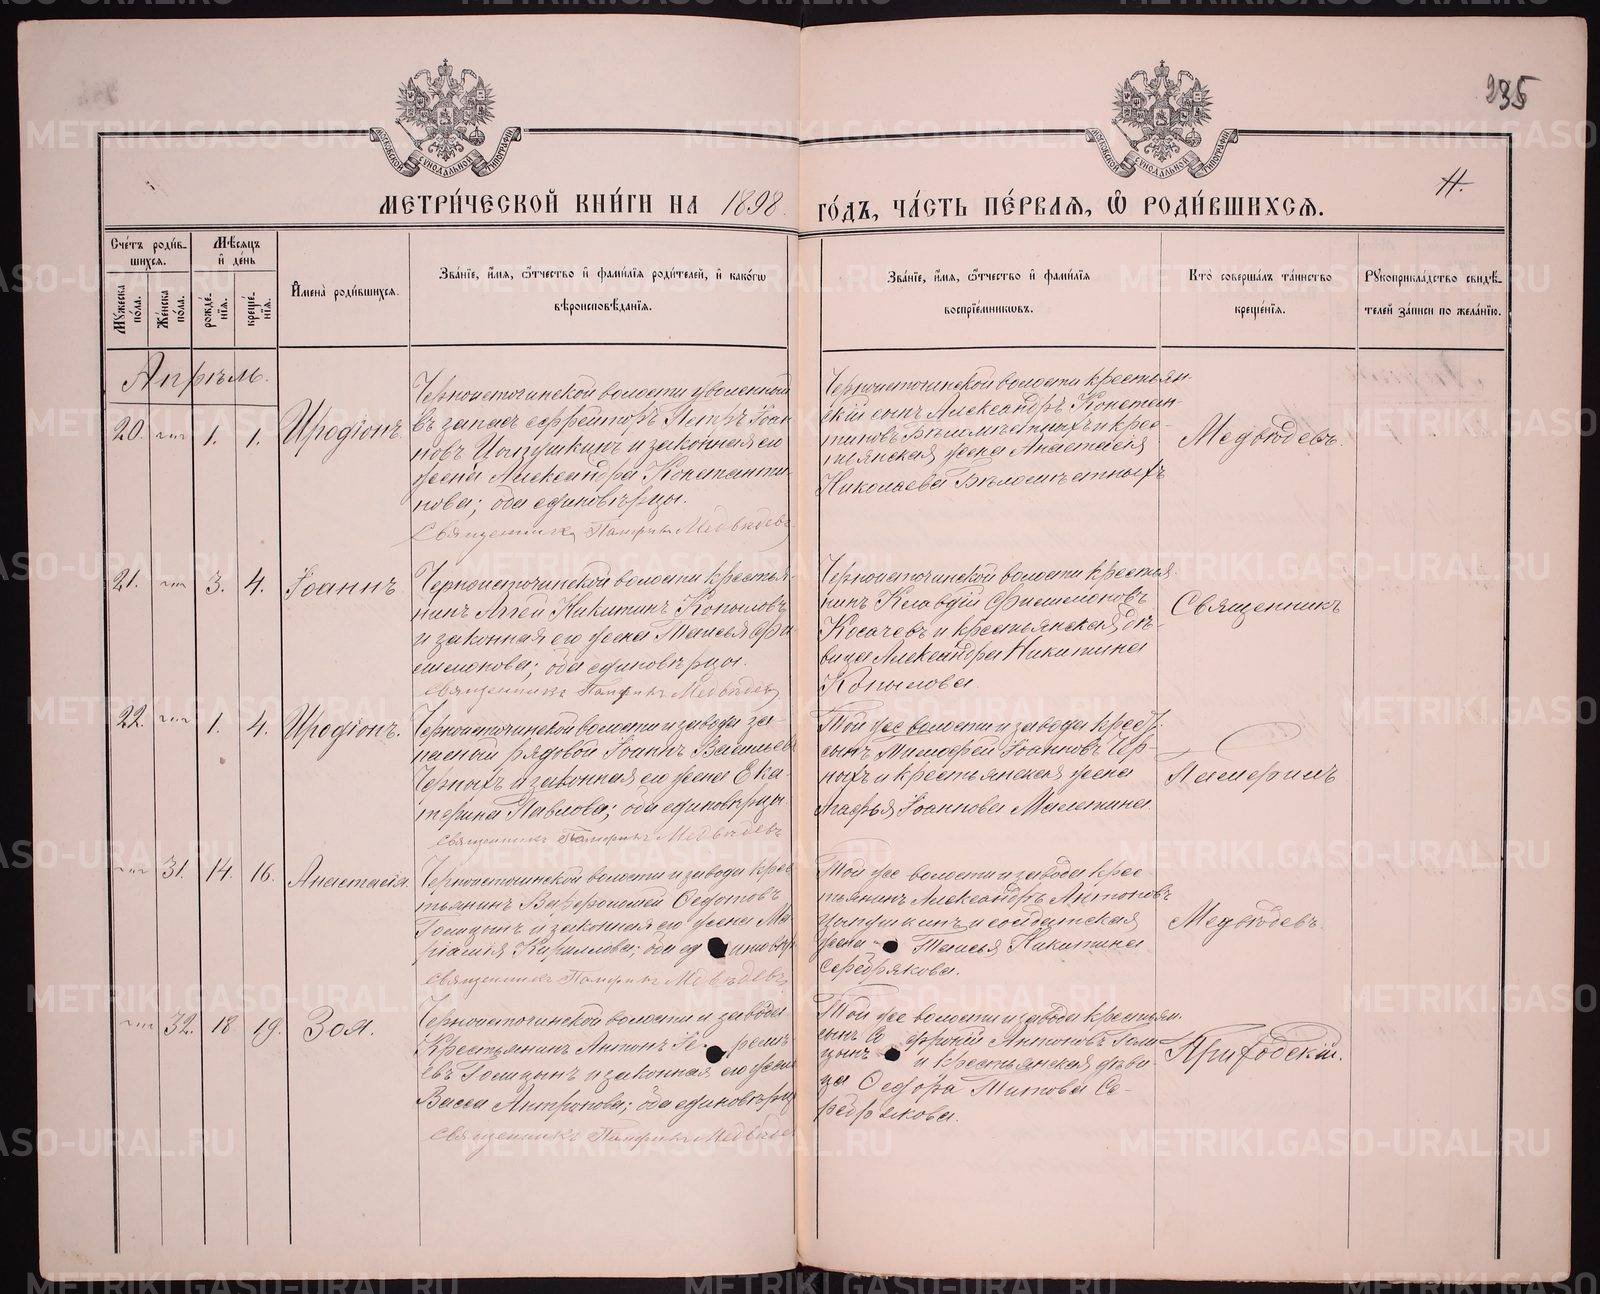 235
МОСКОВСКОЙ СѴНОДАЛЬНОЙ ТИПОГРАФІИ
МОСКОВСКОЙ СѴНОДАЛЬНОЙ ТИПОГРАФІИ
МЕТРИ́ЧЕСКОЙ КНИ́ГИ НА 1898 ГО́ДЪ, ЧА́СТЬ ПЕ́РВАѦ, Ѡ РОДИ́ВШИХСѦ.
Счéтъ роди́в-
шихсѧ.
Мꙋжеска
пóла.
Жéнска
пóла.
Мѣ́сѧцъ
и́ дéнь
рождé-
нїѧ.
крещé-
нїѧ.
И҆мена̀ роди́вшихсѧ.
Звáнїе, и҆́мѧ, ѻ҆́тчество и҆ фами́лїѧ роди́телей, и҆ какóгѡ
вѣроисповѣ́данїѧ.
Звáнїе, и҆́мѧ, ѻ҆́тчество и҆ фами́лїѧ
воспрїéмникѡвъ.
Ктò совершáлъ тáинство
крещéнїѧ.
Рꙋкоприклáдство свидѣ́-
телей зáписи по желáнїю.
Апрѣль.
20. 1. 1. Иродіонъ.
Черноисточинской волости уволенный
въ запасъ ефрейторъ Петръ Іоан-
новъ Цыпушкинъ и законная его
жена Александра Константи-
нова; оба единовѣрцы.
Священникъ Памфилъ Медвѣдевъ
Черноисточинской волости крестьян-
скій сынъ Александръ Констан-
тиновъ Бѣломѣстныхъ и крес-
тьянская жена Анастасія
Николаева Бѣломѣстныхъ
Медвѣдевъ.
21. 3. 4. Іоаннъ
Черноисточинской волости крестья-
нинъ Аггей Никитинъ Копыловъ
и законная его жена Таисья Фи-
лимонова; оба единовѣрцы.
Священникъ Памфилъ Медвѣдевъ
Черноисточинской волости крестья-
нинъ Клавдій Филимоновъ
Косачевъ и крестьянская дѣ-
вица Александра Никитина
Копылова.
Священникъ
22. 1. 4. Иродіонъ.
Черноисточинской волости и завода за-
пасный рядовой Іоаннъ Васильевъ
Черныхъ и законная его жена Ека-
терина Павлова; оба единовѣрцы.
Священникъ Памфилъ Медвѣдевъ
Той же волости и завода крест.
сынъ Тимофей Іоанновъ Чер-
ныхъ и крестьянская жена
Агафья Іоаннова Малетина
Памфилъ
31. 14. 16. Анастасія.
Черноисточинской волости и завода крес-
тьянинъ Варфоломей Федотовъ
Голицынъ и законная его жена Ма-
ріамія Кириллова; оба единовѣр
Священникъ Памфилъ Медвѣдевъ
Той же волости и завода крес-
тьянинъ Александръ Антоновъ
Цыпушкинъ и солдатская
жена Таисья Никитина
Серебрякова.
Медвѣдевъ.
32. 18 19. Зоя.
Черноисточинской волости и завода
Крестьянинъ Антонъ
евъ Голицынъ и законная его жена
Васса Антропова; оба единовѣрц
Священникъ Памфилъ Медвѣдев
Той же волости и завода крестьян.
сынъ Антоновъ Голи-
цынъ и крестьянская дѣви-
ца Федора Титова Се-
ребрякова.
Приходскій.